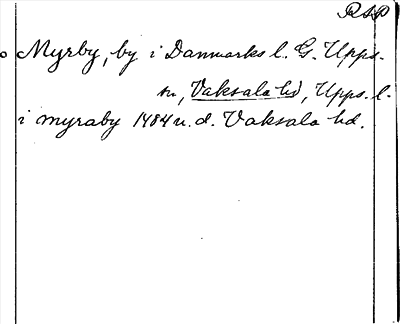 RSP
Myrby, by i Danmarks l. G. Upps.
sn, Vaksala hd, Upps. l.
i myraby 1484 u. d. Vaksala hd.